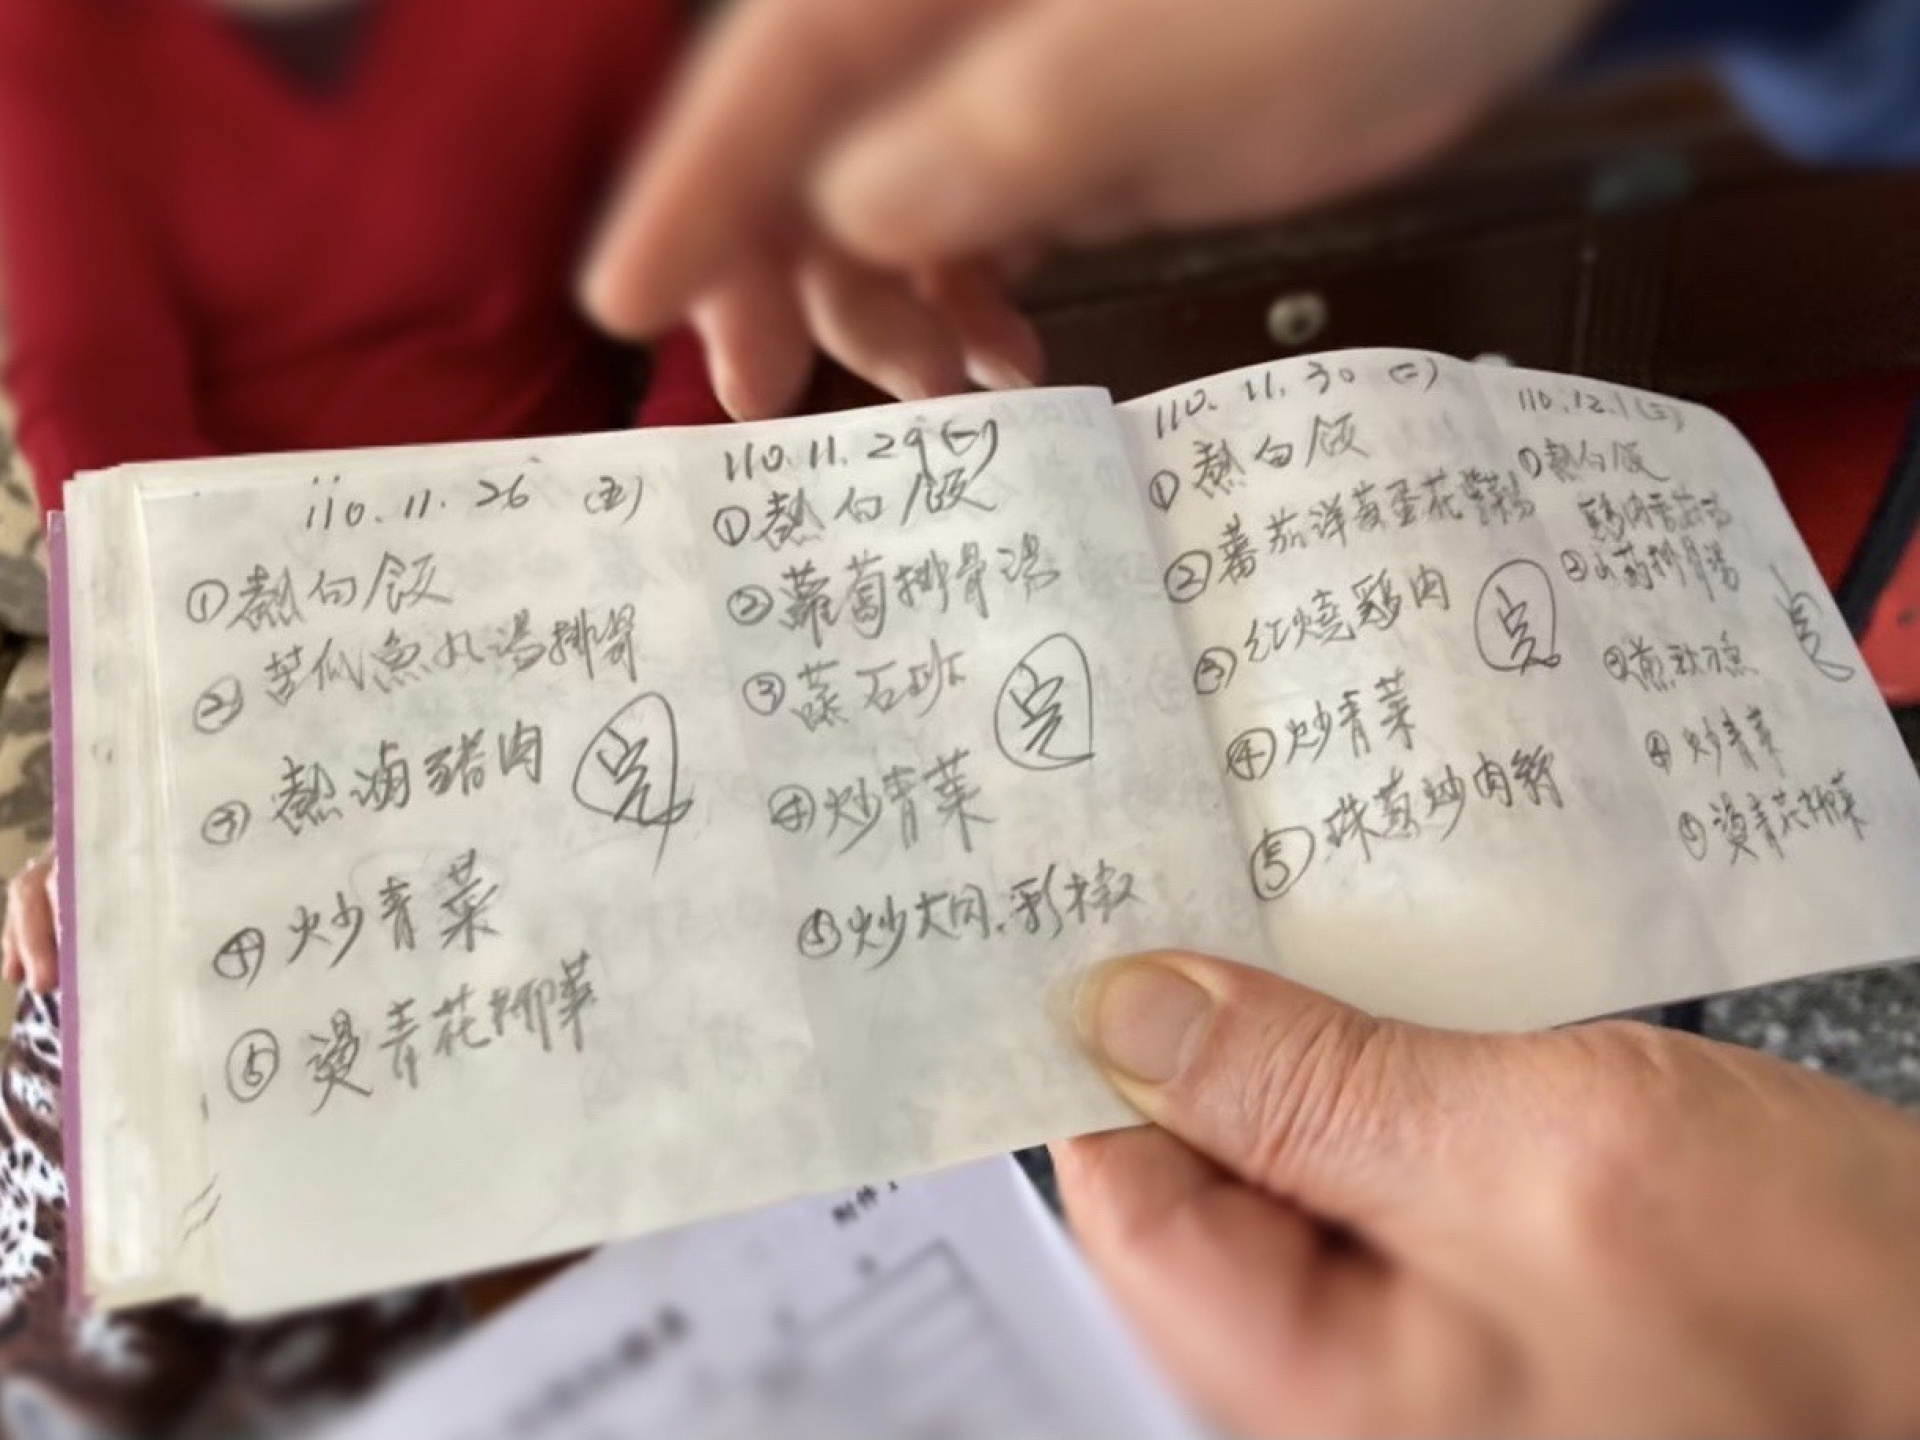 110.11.26 (五)
①熱白飯
②苦瓜魚丸湯排骨
③熱滷豬肉
④炒青菜
⑤燙青花椰菜
完
110.11.29(一)
①熱白飯
②蘿蔔排骨湯
③蒸石斑
④炒青菜
⑤炒大同.彩椒
完
110.11.30 (二)
①熱白飯
②蕃茄洋蔥蛋花
③紅燒鷄肉
④炒青菜
⑤洋蔥炒肉絲
完
110.12.1(三)
①熱白飯
②山藥排骨湯
③煎
④炒青菜
⑤燙青花椰菜
完
附件